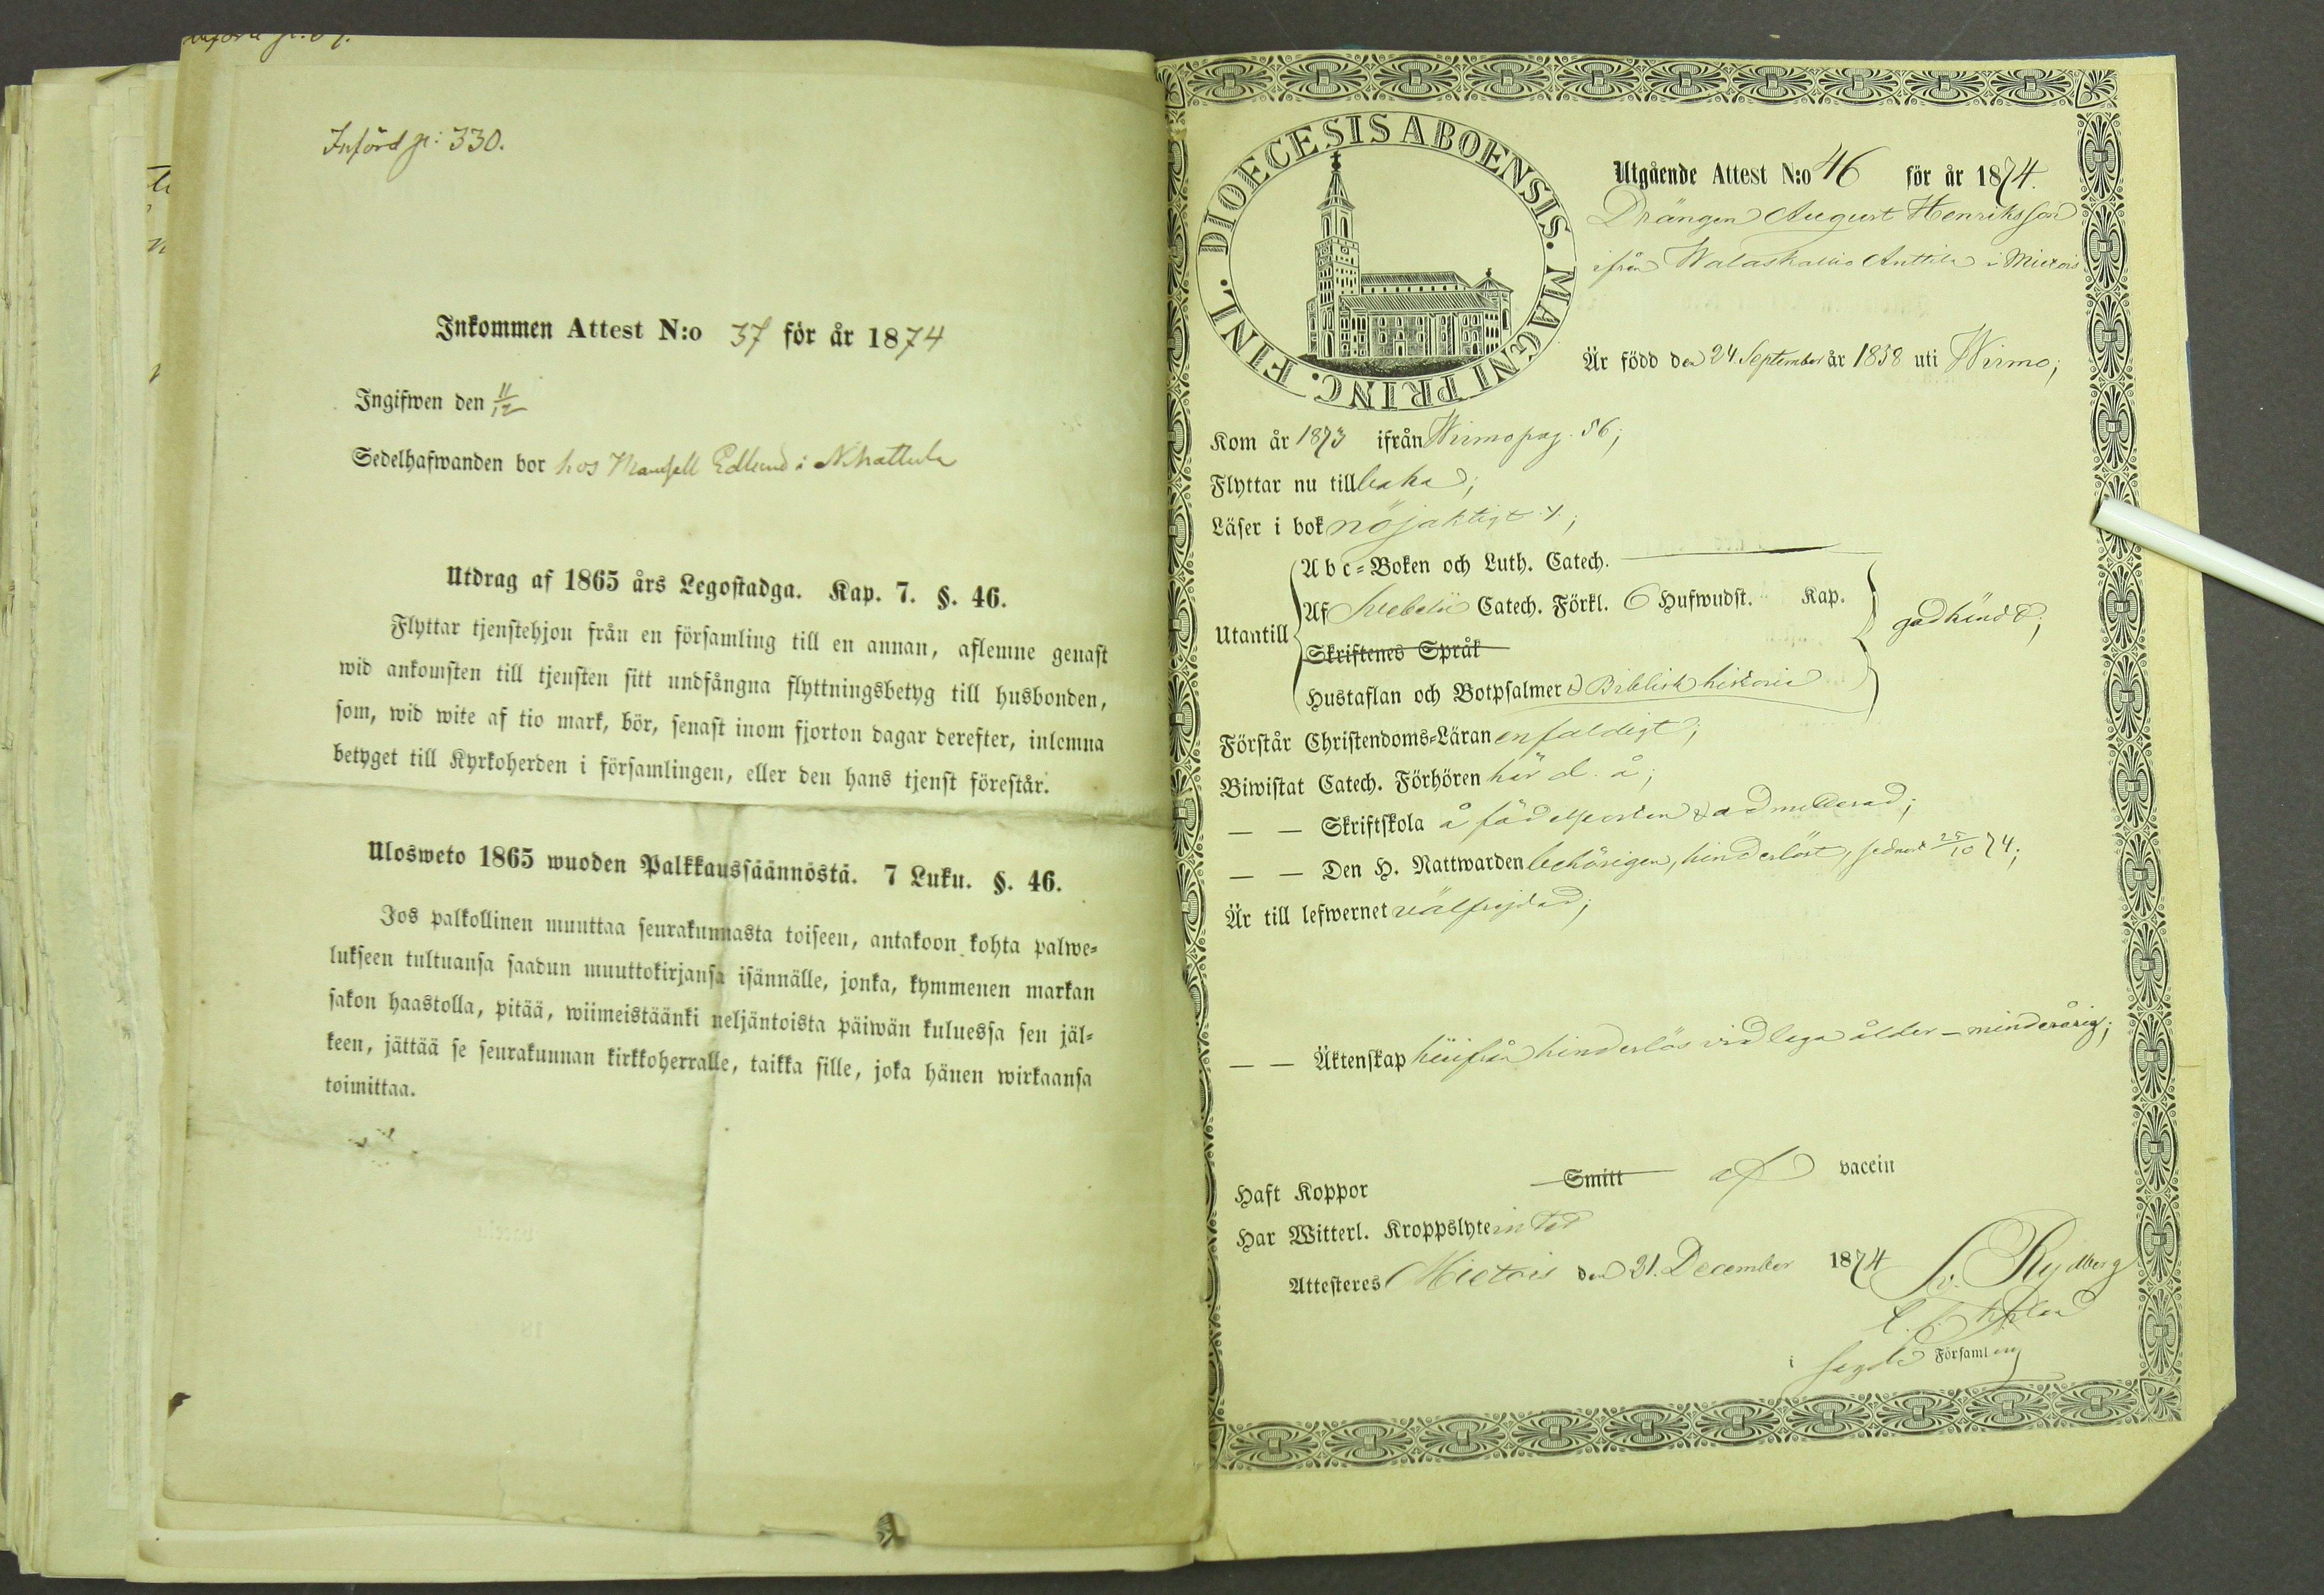 Införd p: 330.
Inkommen Attest N:o 37 för år 1874
Ingifwen den 11/12
Sedelhafwanden bor hos Mamsell Edlund i Nihattula
Utdrag af 1865 års Legostadga. Kap. 7. §. 46.
Flyttar tjenstehjon från en församling till en annan, aflemne genast
wid ankomsten till tjensten sitt undfångna flyttningsbetyg till husbonden,
som, wid wite af tio mark, bör, senast inom fjorton dagar derefter, inlemna
betyget till Kyrkoherden i församlingen, eller den hans tjenst förestår.
Ulosweto 1865 wuoden Palkkaussäännöstä. 7 Luku. §. 46.
Jos palkollinen muuttaa seurakunnasta toiseen, antakoon kohta palwe-
lukseen tultuansa saadun muuttokirjansa isännälle, jonka, kymmenen markan
sakon haastolla, pitää, wiimeistäänki neljäntoista päiwän kuluessa sen jäl-
keen, jättää se seurakunnan kirkkoherralle, taikka sille, joka hänen wirkaansa
toimittaa.
DIOECESIS ABOENSIS. MAGNI PRINC. FINL.
Utgående Attest N:o 46 för år 1874.
Drängen August Henriksson
ifrån Walaskallio Anttila i Mietois
Är född den 24 September år 1858 uti Wirmo;
Kom år 1873 ifrån Wirmo pag. 56;
Flyttar nu tillbaka;
Läser i bok nöjaktigt
Abc-Boken och Luth. Catech.
Utantill
Af Svebelii Catech. Förkl. 6 Hufwudst. Kap.
godkändt;
Skriftenes Språk
Hustaflan och Botpsalmer & Biblisk historia
Förstår Christendoms-Läran enfaldigt;
Biwistat Catech. Förhören här d. å;
— — Skriftskola å födelseorten & admitterad;
— — Den H. Nattwarden behörigen, hinderlöst, sednast 25/10 74;
Är till lefwernet välfrejdad;
— — Äktenskap härifrån hinderlös vid laga ålder - minderårig;
Haft Koppor Smitt af vaccin
Har Witterl. Kroppslyte intet
Attesteres Mietois den 31. December 1874
Rydberg
i sagde Församling